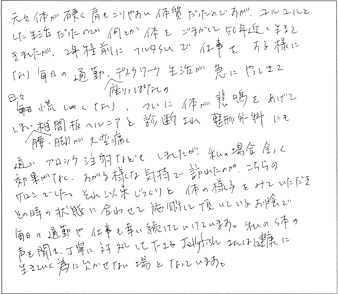 元々体が硬く肩もこりやすい体質だったのですが、ユルユルと
した生活だったので何とか体をごまかして50年近く生きて
きましたが、2年程前にフルタイムで仕事をする様に
なり毎日の通勤、デスクワーク生活が急にやってきて
座りっぱなしの
日々
毎日忙しくなり、ついに体が悲鳴をあげて
しまい椎間板ヘルニアと診断され整形外科にも
腰・脚が大変痛く
通いブロック注射などもしましたが、私の場合全く
効果がなく、すがる様な気持で訪れたのが、こちらの
サロンでした。それ以来じっくりと体の様子をみていただき
その時の状態に合わせて施術して頂いているお陰で
毎日の通勤や仕事を続けていけています。私の体の
声を聞き、丁寧に対処してくださるJellyfishさんは健康に
生きていく為に欠かせない場となっています。